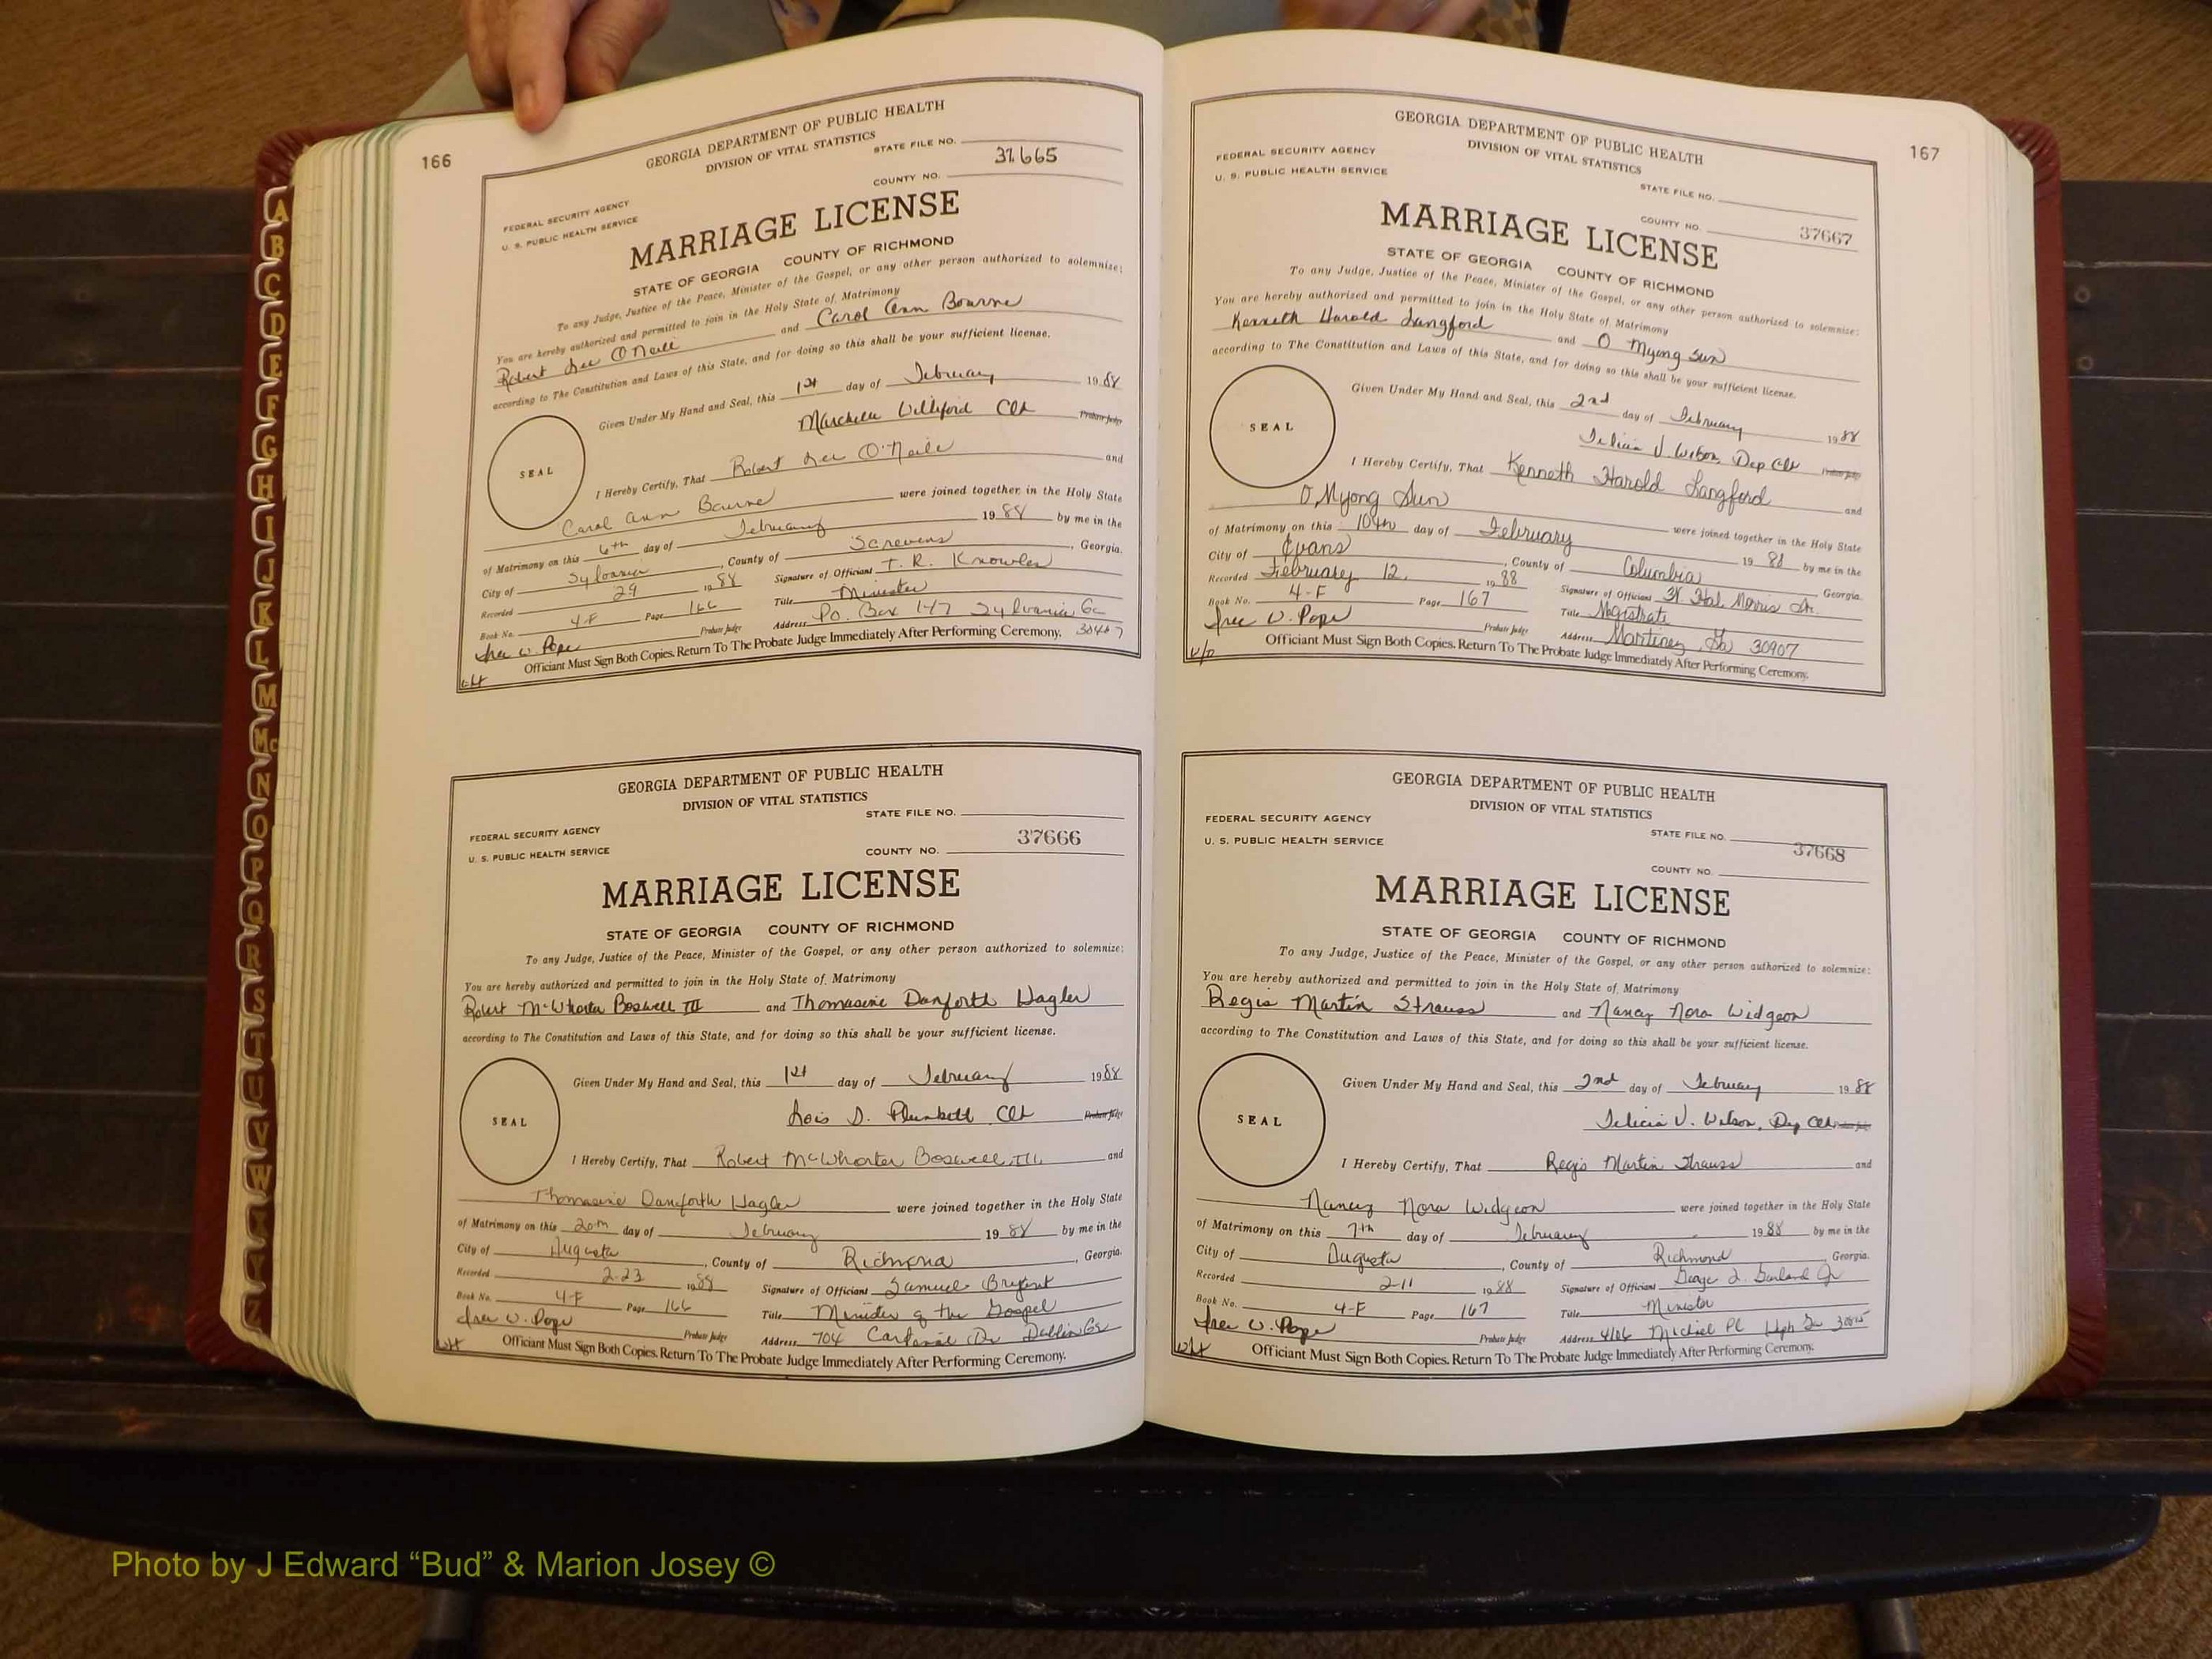 166
GEORGIA DEPARTMENT OF PUBLIC HEALTH
DIVISION OF VITAL STATISTICS
STATE FILE NO.
37665
COUNTY NO.
FEDERAL SECURITY AGENCY
U. S. PUBLIC HEALTH SERVICE
MARRIAGE LICENSE
STATE OF GEORGIA COUNTY OF RICHMOND
To any Judge, Justice of the Peace, Minister of the Gospel, or any other person authorized to solemnize:
You are hereby authorized and permitted to join in the Holy State of Matrimony
Robert Lee O'Neill and Carol Ann Bourne
according to The Constitution and Laws of this State, and for doing so this shall be your sufficient license.
Given Under My Hand and Seal, this 1st day of February 1988
Williford Clk Probate Judge
SEAL
I Hereby Certify, That Robert Lee O'Neill and
Carol Ann Bourne were joined together in the Holy State
of Matrimony on this 6th day of February 1988 by me in the
City of Sylvania, County of Screvens, Georgia.
Recorded 29 1988 Signature of Officiant T. R. Knowles
Book No. 4-F Page 166 Title Minister
Probate Judge Address P.O. Box 147 Sylvania Ga 30467
W. Pope
Officiant Must Sign Both Copies. Return To The Probate Judge Immediately After Performing Ceremony.
GEORGIA DEPARTMENT OF PUBLIC HEALTH
DIVISION OF VITAL STATISTICS
STATE FILE NO.
FEDERAL SECURITY AGENCY
37666
U. S. PUBLIC HEALTH SERVICE
COUNTY NO.
MARRIAGE LICENSE
STATE OF GEORGIA COUNTY OF RICHMOND
To any Judge, Justice of the Peace, Minister of the Gospel, or any other person authorized to solemnize:
You are hereby authorized and permitted to join in the Holy State of Matrimony
Robert McWhorter Boswell III and Thomasine Danforth Hagler
according to The Constitution and Laws of this State, and for doing so this shall be your sufficient license.
Given Under My Hand and Seal, this 1st day of February 1988
Lois D. Plunkett Clk Probate Judge
SEAL
I Hereby Certify, That Robert McWhorter Boswell, III and
Thomasine Danforth Hagler were joined together in the Holy State
of Matrimony on this 20th day of February 1988 by me in the
City of Augusta, County of Richmond, Georgia.
Recorded 2-23 1988 Signature of Officiant Samuel Bryant
Book No. 4-F Page 166 Title Minister of the Gospel
W. Pope
Probate Judge Address 704 Cardinal Dr Dublin Ga
Officiant Must Sign Both Copies. Return To The Probate Judge Immediately After Performing Ceremony.
167
GEORGIA DEPARTMENT OF PUBLIC HEALTH
DIVISION OF VITAL STATISTICS
FEDERAL SECURITY AGENCY
U. S. PUBLIC HEALTH SERVICE
STATE FILE NO.
COUNTY NO. 37667
MARRIAGE LICENSE
STATE OF GEORGIA COUNTY OF RICHMOND
To any Judge, Justice of the Peace, Minister of the Gospel, or any other person authorized to solemnize:
You are hereby authorized and permitted to join in the Holy State of Matrimony
Kenneth Harold Langford and O Myong Sun
according to The Constitution and Laws of this State, and for doing so this shall be your sufficient license.
Given Under My Hand and Seal, this 2nd day of February 1988
Felicia V. Wilson, Dep Clk Probate Judge
SEAL
I Hereby Certify, That Kenneth Harold Langford and
O, Myong Sun were joined together in the Holy State
of Matrimony on this 10th day of February 1988 by me in the
City of Evans, County of Columbia Georgia.
Recorded February 12, 1988 Signature of Officiant Hal Morris
Book No. 4-F Page 167 Title Magistrate
W. Pope
Probate Judge Address Martinez, Ga 30907
Officiant Must Sign Both Copies. Return To The Probate Judge Immediately After Performing Ceremony.
GEORGIA DEPARTMENT OF PUBLIC HEALTH
DIVISION OF VITAL STATISTICS
FEDERAL SECURITY AGENCY
U. S. PUBLIC HEALTH SERVICE
STATE FILE NO.
37668
COUNTY NO.
MARRIAGE LICENSE
STATE OF GEORGIA COUNTY OF RICHMOND
To any Judge, Justice of the Peace, Minister of the Gospel, or any other person authorized to solemnize:
You are hereby authorized and permitted to join in the Holy State of Matrimony
Regis Martin Strauss and Nancy Nora Widgeon
according to The Constitution and Laws of this State, and for doing so this shall be your sufficient license.
Given Under My Hand and Seal, this 2nd day of February 1988
Felicia V. Wilson, Dep Clk Probate Judge
SEAL
I Hereby Certify, That Regis Martin Strauss and
Nancy Nora Widgeon were joined together in the Holy State
of Matrimony on this 7th day of February 1988 by me in the
City of Augusta, County of Richmond Georgia.
Recorded 2-11 1988 Signature of Officiant George Garland Jr
Book No. 4-F Page 167 Title Minister
W. Pope
Probate Judge Address 4106 Michael Pl Heph Ga 30815
Officiant Must Sign Both Copies. Return To The Probate Judge Immediately After Performing Ceremony.
A
B
C
D
E
F
G
H
I
J
K
L
M
Mc
N
O
P
Q
R
S
T
U
V
W
X
Y
Z
Photo by J Edward “Bud” & Marion Josey ©